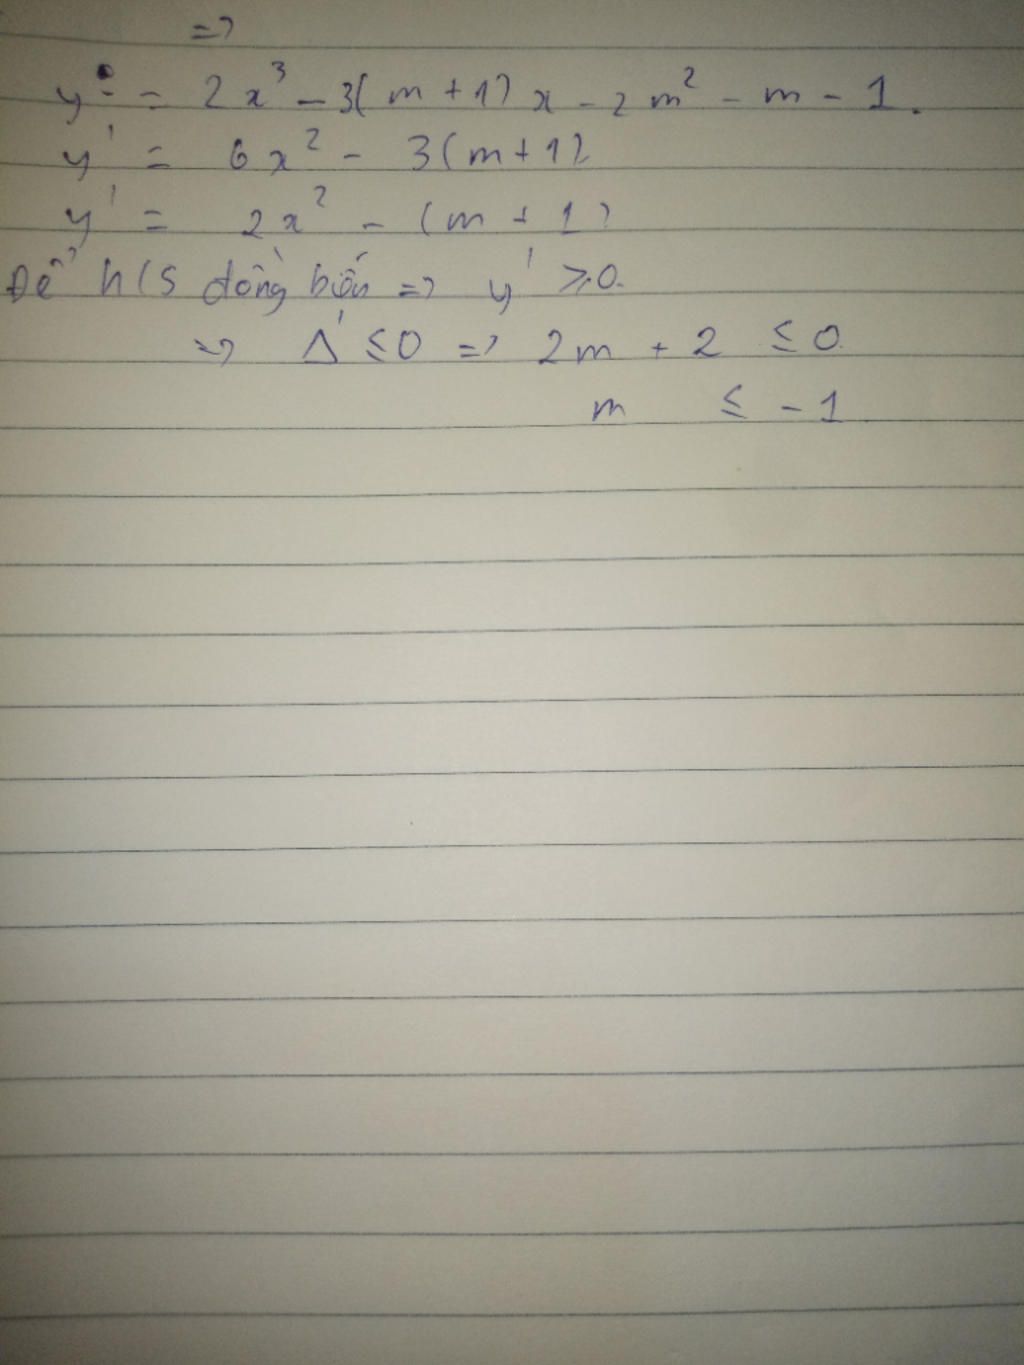 =>
y = 2x³ - 3(m+1)x - 2m² - m - 1.
y' = 6x² - 3(m+1)
y' = 2x² - (m+1)
Để h/s đồng biến => y' ≥ 0.
=> Δ' ≤ 0 => 2m + 2 ≤ 0.
m ≤ -1